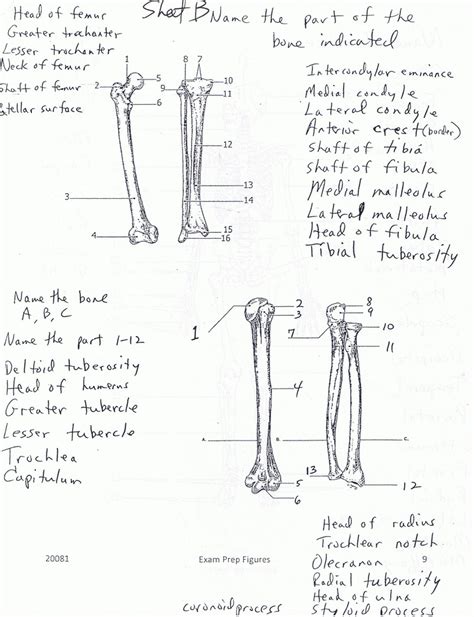 Sheet B Name the part of the
bone indicated
Head of femur
Greater trochanter
Lesser trochanter
Neck of femur
Shaft of femur
Patellar surface
Intercondylar eminance
Medial condyle
Lateral condyle
Anterior crest (border)
shaft of tibia
shaft of fibula
Medial malleolus
Lateral malleolus
Head of fibula
Tibial tuberosity
1
2
3
4
5
6
7
8
9
10
11
12
13
14
15
16
Name the bone
A, B, C
Name the part 1-12
Deltoid tuberosity
Head of humerus
Greater tubercle
Lesser tubercle
Trochlea
Capitulum
1
2
3
4
5
6
7
8
9
10
11
12
13
A
B
C
Head of radius
Trochlear notch
Olecranon
Radial tuberosity
Head of ulna
Styloid process
coronoid process
20081
Exam Prep Figures
9